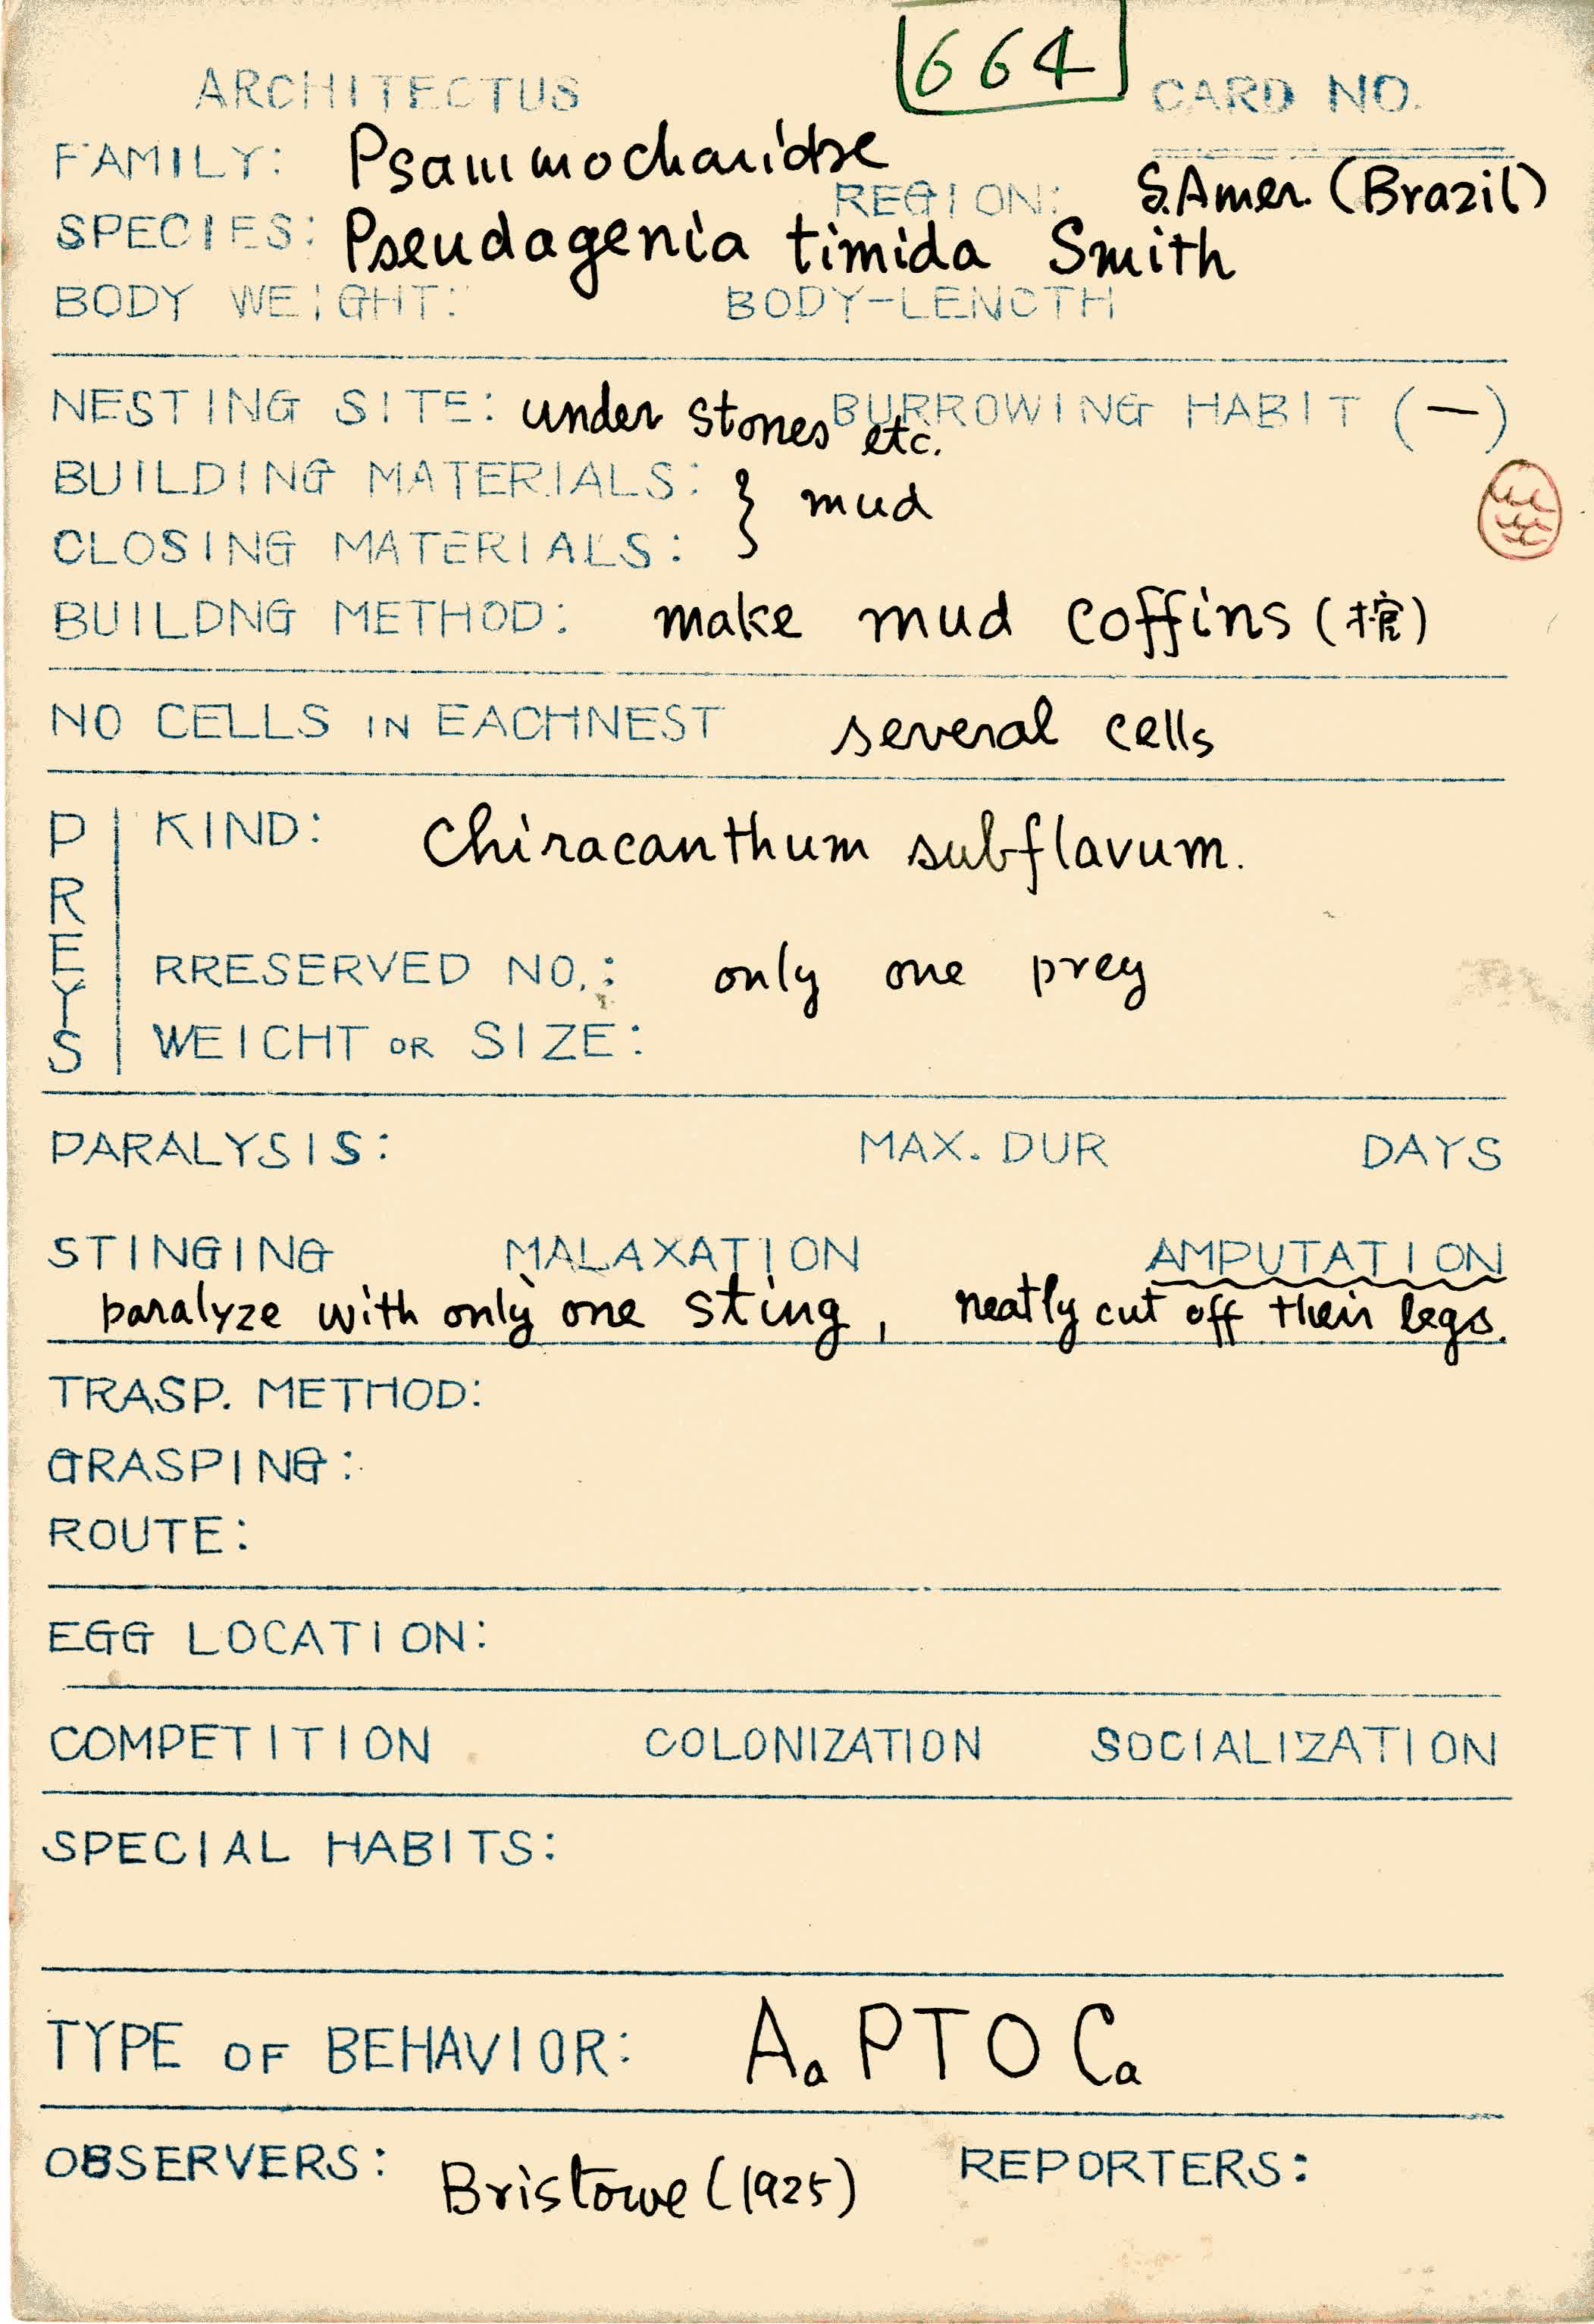 664
ARCHITECTUS CARD NO.
FAMILY: Psammocharidae
REGION: S.Amer. (Brazil)
SPECIES: Pseudagenia timida Smith
BODY WEIGHT: BODY-LENCTH
NESTING SITE: under stones etc. BURROWING HABIT (—)
BUILDING MATERIALS: } mud
CLOSING MATERIALS:
BUILDNG METHOD: make mud coffins (棺)
NO CELLS IN EACHNEST several cells
PREYS
KIND: Chiracanthum subflavum.
RRESERVED NO.: only one prey
WEICHT OR SIZE:
PARALYSIS: MAX. DUR DAYS
STINGING MALAXATION AMPUTATION
paralyze with only one sting, neatly cut off their legs.
TRASP. METHOD:
GRASPING:
ROUTE:
EGG LOCATION:
COMPETITION COLONIZATION SOCIALIZATION
SPECIAL HABITS:
TYPE OF BEHAVIOR: Aa PTO Ca
OBSERVERS: Bristowe (1925) REPORTERS: